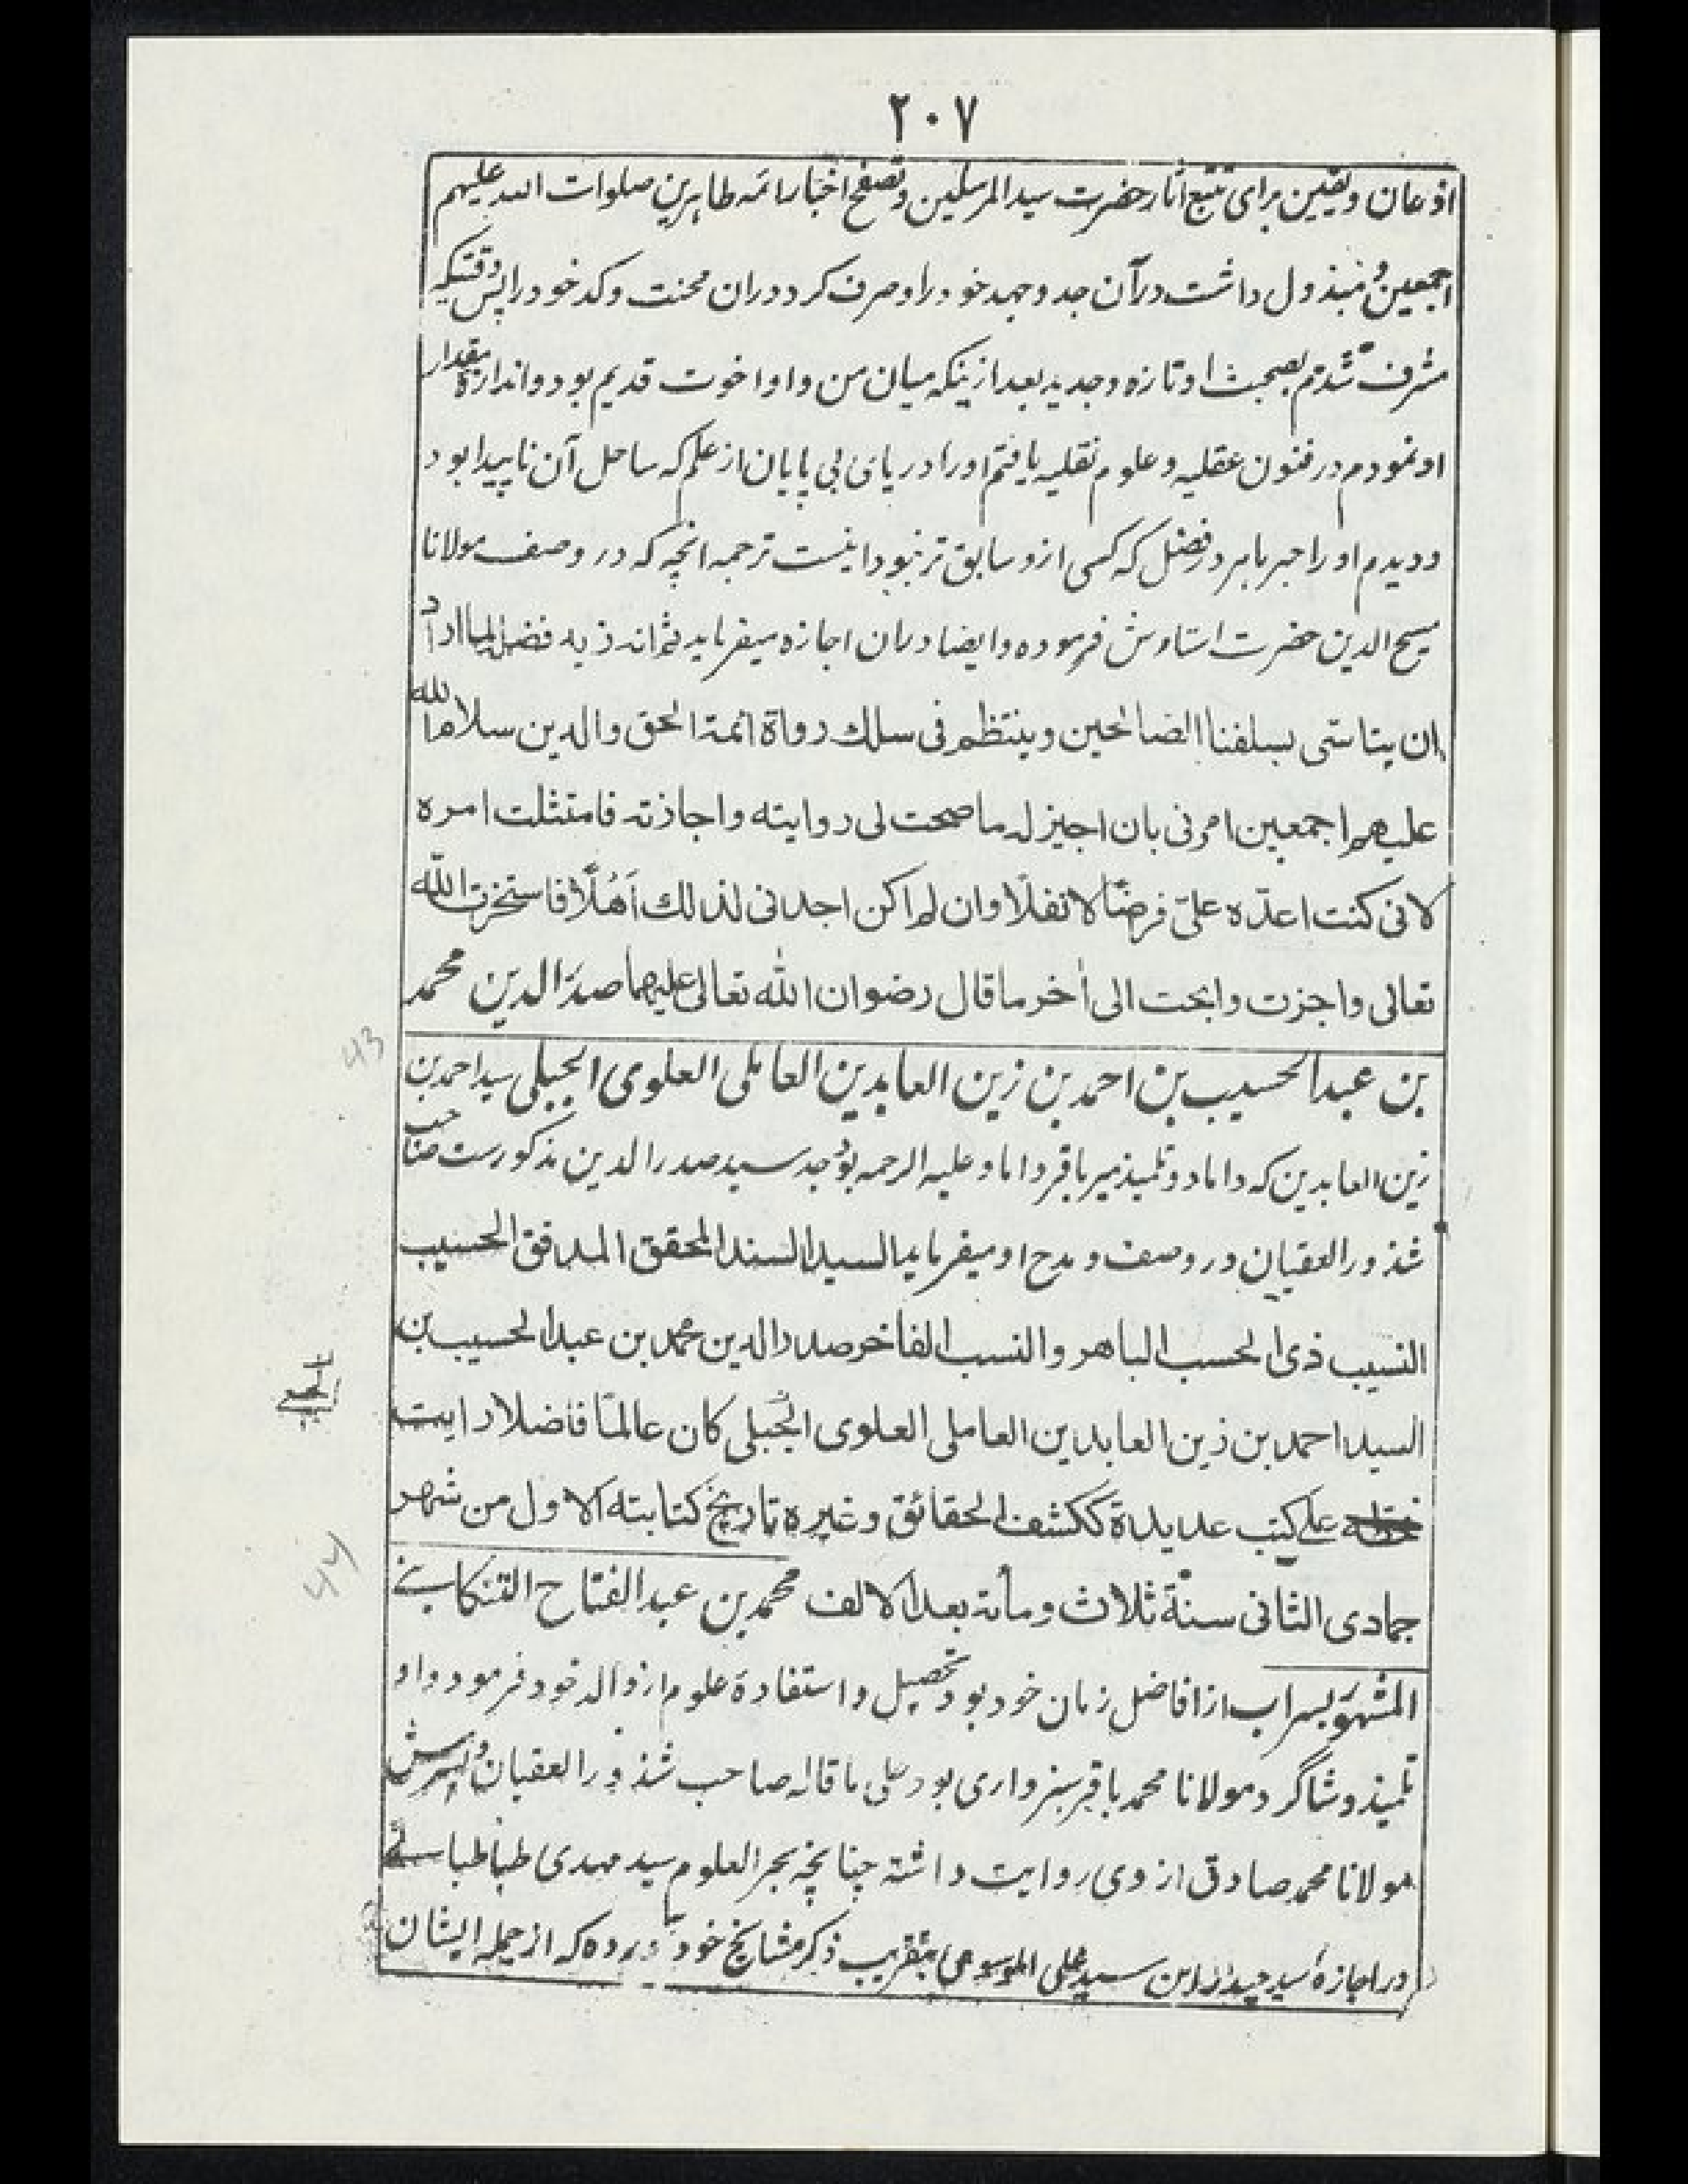 ۲۰۷
اذعان ویقین برای تتبع آثار حضرت سید المرسلین وتصفح اخبار ائمه طاهرین صلوات الله علیهم
اجمعین ومبذول داشت درآن جد وجهد خود را وصرف کرد دران محنت وکد خود را پس وقتیکه
مشرف شدم بصحبت او تازه وجدید بعد ازینکه میان من واو اخوت قدیم بود واندازه بمقدار
او نمودم در فنون عقلیه وعلوم نقلیه یافتم اورا دریای بی پایان از علم که ساحل آن ناپیدا بود
ودیدم اورا حبر باهر در فضل که کسی ازو سابق تر نبود اینست ترجمه انچه که در وصف مولانا
مسیح الدین حضرت استاوش فرموده وایضا دران اجازه میفرماید ثم انه زید فضله لما اراد
ان یتاسی بسلفنا الصالحین وینتظم فی سلك رواة ائمة الحق والدین سلام الله
علیهم اجمعین امرنی بان اجیز له ما صحت لی روایته واجازته فامتثلت امره
لانی کنت اعدّه علیّ فرضًا لا نفلًا وان لم اکن اجدنی لذلك أهلًا فاستخرت الله
تعالی واجزت وابحت الی أخر ما قال رضوان الله تعالی علیهما صدر الدین محمد
بن عبد الحسیب بن احمد بن زین العابدین العاملی العلوی الجبلی سید احمد بن
زین العابدین که داماد وتلمیذ میر باقر داماد علیه الرحمه بود جد سید صدر الدین مذکورست صاحب
شذور العقیان در وصف ومدح او میفرماید السید السند المحقق المدقق الحسیب
النسیب ذی الحسب الباهر والنسب الفاخر صدر الدین محمد بن عبد الحسیب بن
السید احمد بن زین العابدین العاملی العلوی الجبلی کان عالمًا فاضلا رایت
خطه علی کتب عدیدة ککشف الحقائق وغیره تاریخ کتابته الاول من شهر
جمادی الثانی سنة ثلاث ومأته بعد الالف محمد بن عبد الفتاح التنکابنی
المشهور بسراب از افاضل زمان خود بود تحصیل واستفادهٔ علوم از والد خود فرمود واو
تلمیذ وشاگرد مولانا محمد باقر سبزواری بود علی ما قاله صاحب شذور العقیان وپسرش
مولانا محمد صادق از وی روایت داشته چنانچه بحر العلوم سید مهدی طباطبائی
در اجازهٔ سید حیدر ابن سید علی الموسوی بتقریب ذکر مشایخ خود آورده که از جمله ایشان
43
44